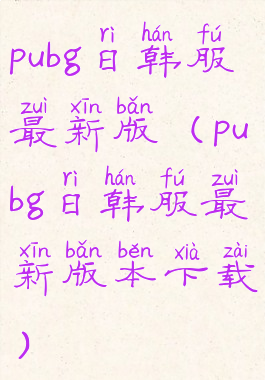 rì hán fú
pubg日韩服
zuì xīn bǎn
最新版（pu
rì hán fú zuì
bg日韩服最
xīn bǎn běn xià zài
新版本下载
）